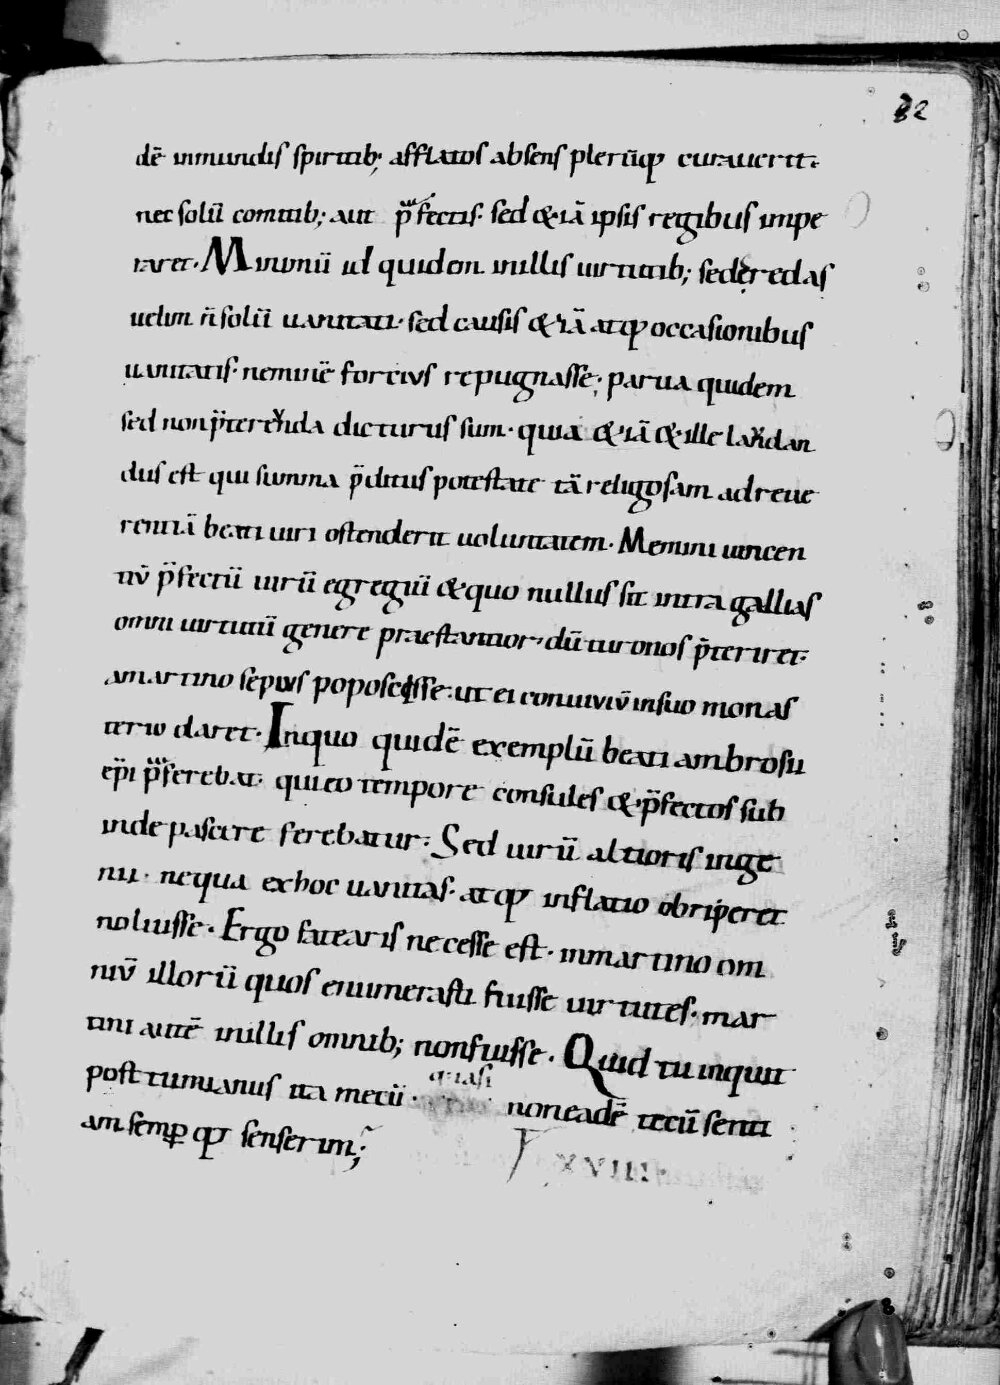 82
dē inmundis spiritib; afflatos absens plerūq; curauerit.
nec solū comitib; aut p̄fectis. sed & iā ipsis regibus impe
raret. Minimū id quidem in illis uirtutib; sed credas
uelim n̄ solū uanitati. sed causis & iā atq; occasionibus
uanitatis. neminē fortius repugnasse; parua quidem
sed non p̄tereunda dicturus sum. quia & iā & ille laudan
dus est qui summa p̄ditus potestate tā religosam ad reue
rentiā beati uiri ostenderit uoluntatem. Memini uincen
tiū p̄fectū uirū egregiū & quo nullus sit intra gallias
omni uirtutū genere praestantior. dū turonos p̄teriret.
amartino sepius poposcisse. ut ei conuiuiū insuo monas
terio daret. Inquo quidē exemplū beati ambrosii
ep̄i p̄ferebat. qui eo tempore consules & p̄fectos sub
inde pascere ferebatur. Sed uirū altioris inge
nii. nequa exhoc uanitas. atq; inflatio obriperet
noluisse. Ergo fatearis necesse est. inmartino om
niū illorū quos enumerasti fuisse uirtutes. mar
tini autē in illis omnib; nonfuisse. Quid tu inquit
quasi
postumianus ita mecū. non eadē tecū senti
am semp̱ q; senserim;
XVIII.